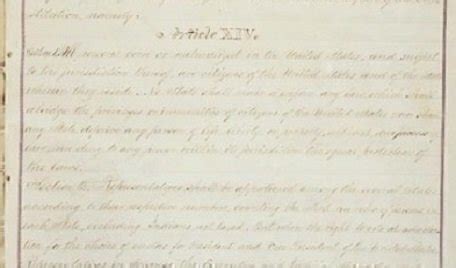 stitution, namely:
Article XIV.
born or naturalized in the United States, and subject
to the jurisdiction thereof, are citizens of the United States and of the State
wherein they reside. No State shall make or enforce any law which shall
abridge the privileges or immunities of citizens of the United States nor shall
any State deprive any person of life, liberty, or property, without due process
to any person within its jurisdiction the equal protection of
the laws.
Section 2. Representatives shall be apportioned among the several States
according to their respective numbers, counting the whole number of persons in
each State, excluding Indians not taxed. But when the right to vote at any elec
tion for the choice of electors for President and Vice President of the United States
Representatives in Congress, the Executive and